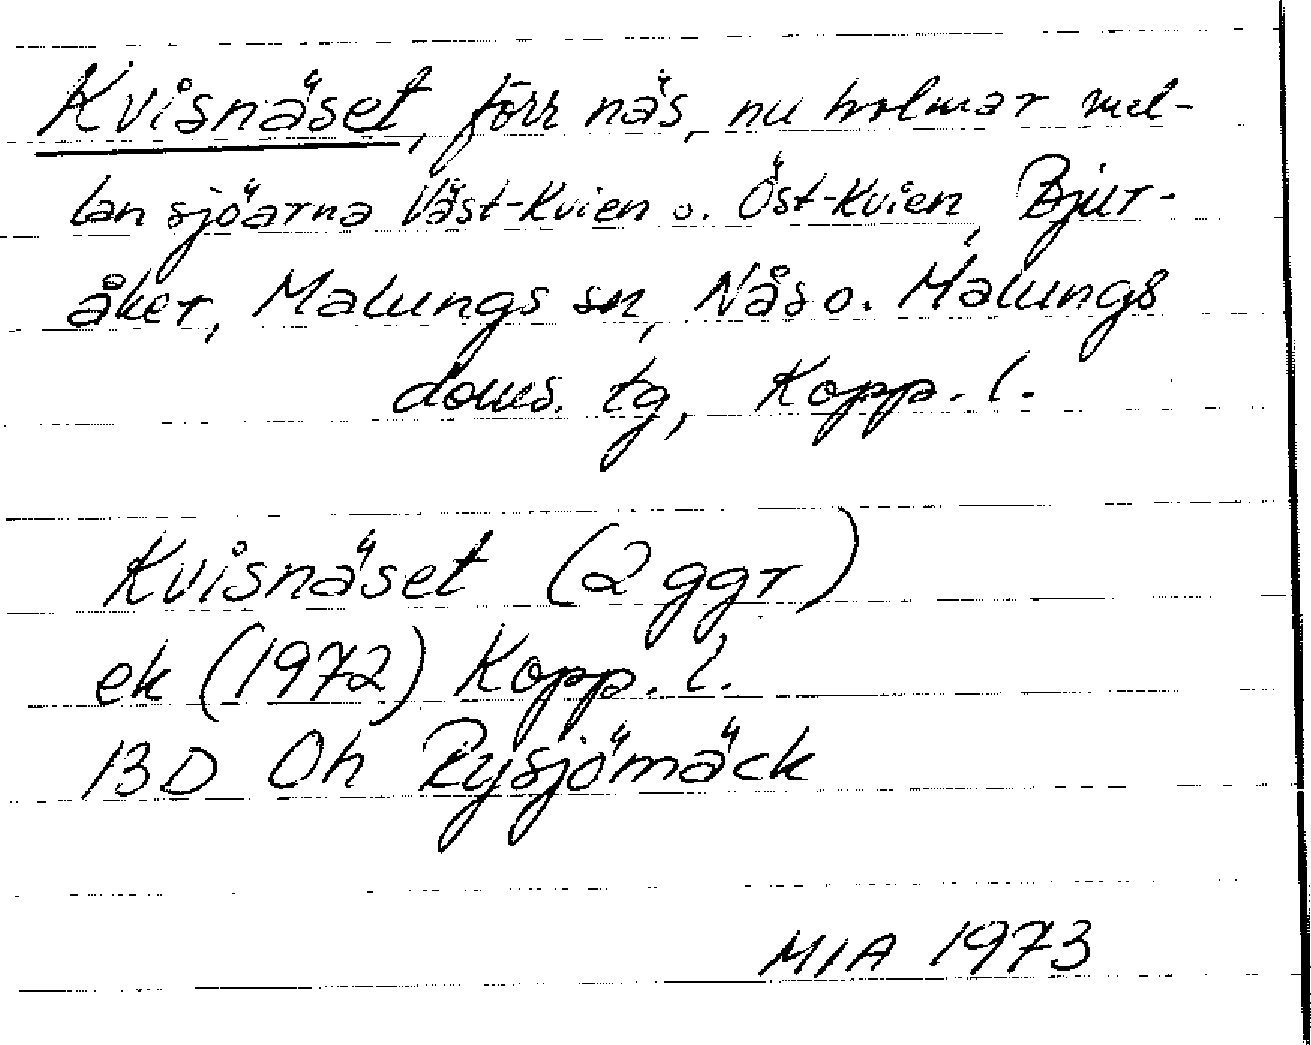 Kvisnäset, förr näs, nu holmar mel-
lan sjöarna Väst-Kvien o. Öst-Kvien, Bjur-
åker, Malungs sn, Nås o. Malungs
doms. tg, Kopp. l.
Kvisnäset (2 ggr)
ek (1972) Kopp. l.
13D 0h Rysjömäck
MIA 1973